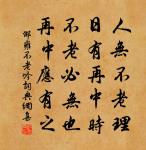 人無不老理
日有再中時
不老必無也
再中應有之
邵雍不老吟詞典網集